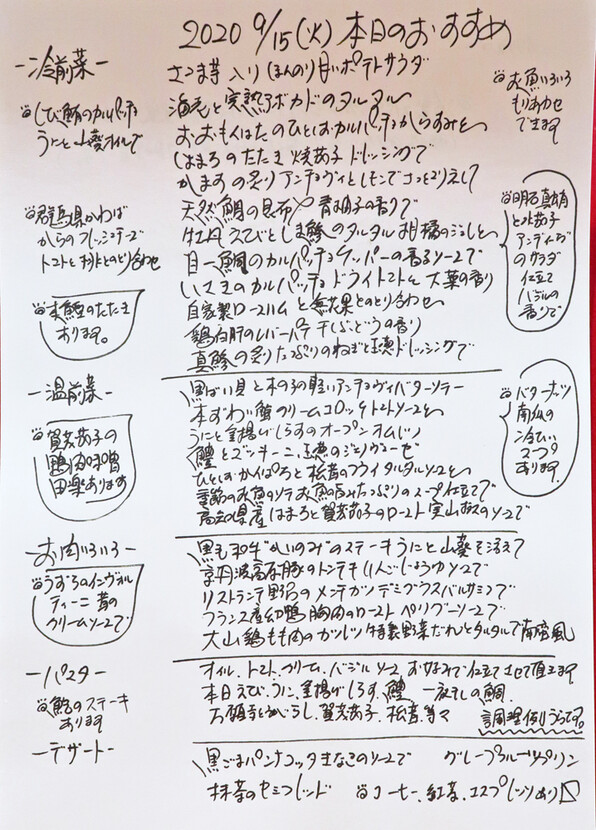 2020 9/15(火)本日のおすすめ
-冷前菜-
さつま芋入りほんのり甘いポテトサラダ
海老と完熟アボカドのタルタル
おおもんはたのひとしおカルパッチョからすみと
はまちのたたき 焼茄子ドレッシングで
かますの炙り アンチョヴィとレモンで
天然鯛の昆布〆 青柚子の香りで
牡丹えびとしま鯵のタルタル 柑橘のジュレと
目一鯛のカルパッチョ ケッパーの香るソースで
いさきのカルパッチョ ドライトマトと大葉の香り
自家製ロースハムと無花果とのとり合わせ
鶏白肝のレバーパテ 干しぶどうの香り
真鯵の炙り たっぷりのねぎと玉葱ドレッシングで
しび鮪のカルパッチョ
うにと山葵オイルで
群馬県かわば
からのフレッシュチーズ
トマトと
とのとり合わせ
本鱈のたたき
あります。
お魚いろいろ
もりあわせ
できます
明石真蛸
と水茄子
アンディーブ
のサラダ
仕立て
バジルの
香りで
-温前菜-
黒ばい貝と木の子の軽いアンチョヴィバターソテー
本ずわい蟹クリームコロッケ トマトソースと
うにと釜揚げしらすのオープンオムレツ
鱧とズッキーニ、玉葱のジェノヴェーゼ
ひとしおかんぱちと松茸のフライ タルタルソースと
季節のお魚のソテー お魚の旨みたっぷりのスープ仕立てで
高知県産はまちと賀茂茄子のロースト 実山椒のソースで
賀茂茄子の
鴨肉味噌
田楽あります
バターナッツ
南瓜の
冷たい
スープ
あります
-お肉いろいろ-
黒毛和牛"かいのみ"のステーキ うにと山葵を添えて
京丹波高原豚のトンテキ りんごしょうゆソースで
リストランテ野呂のメンチカツ デミグラスバルサミコで
フランス産幼鴨胸肉のロースト ペリグーソースで
大山鶏もも肉のカツレツ 特製野菜だれとタルタルで南蛮風
うずらのインヴォル
ティーニ 茸の
クリームソースで
-パスタ-
オイル、トマト、クリーム、バジルソース お好みで仕立てさせて頂きます
本日 えび、うに、釜揚げしらす、鱧 一夜干しの鯛
万願寺とうがらし、賀茂茄子、松茸、等々
調理例
鮪のステーキ
あります
-デザート-
黒ごまパンナコッタ きなこのソースで
グレープフルーツプリン
抹茶のセミフレッド
コーヒー、紅茶、エスプレッソあり〼